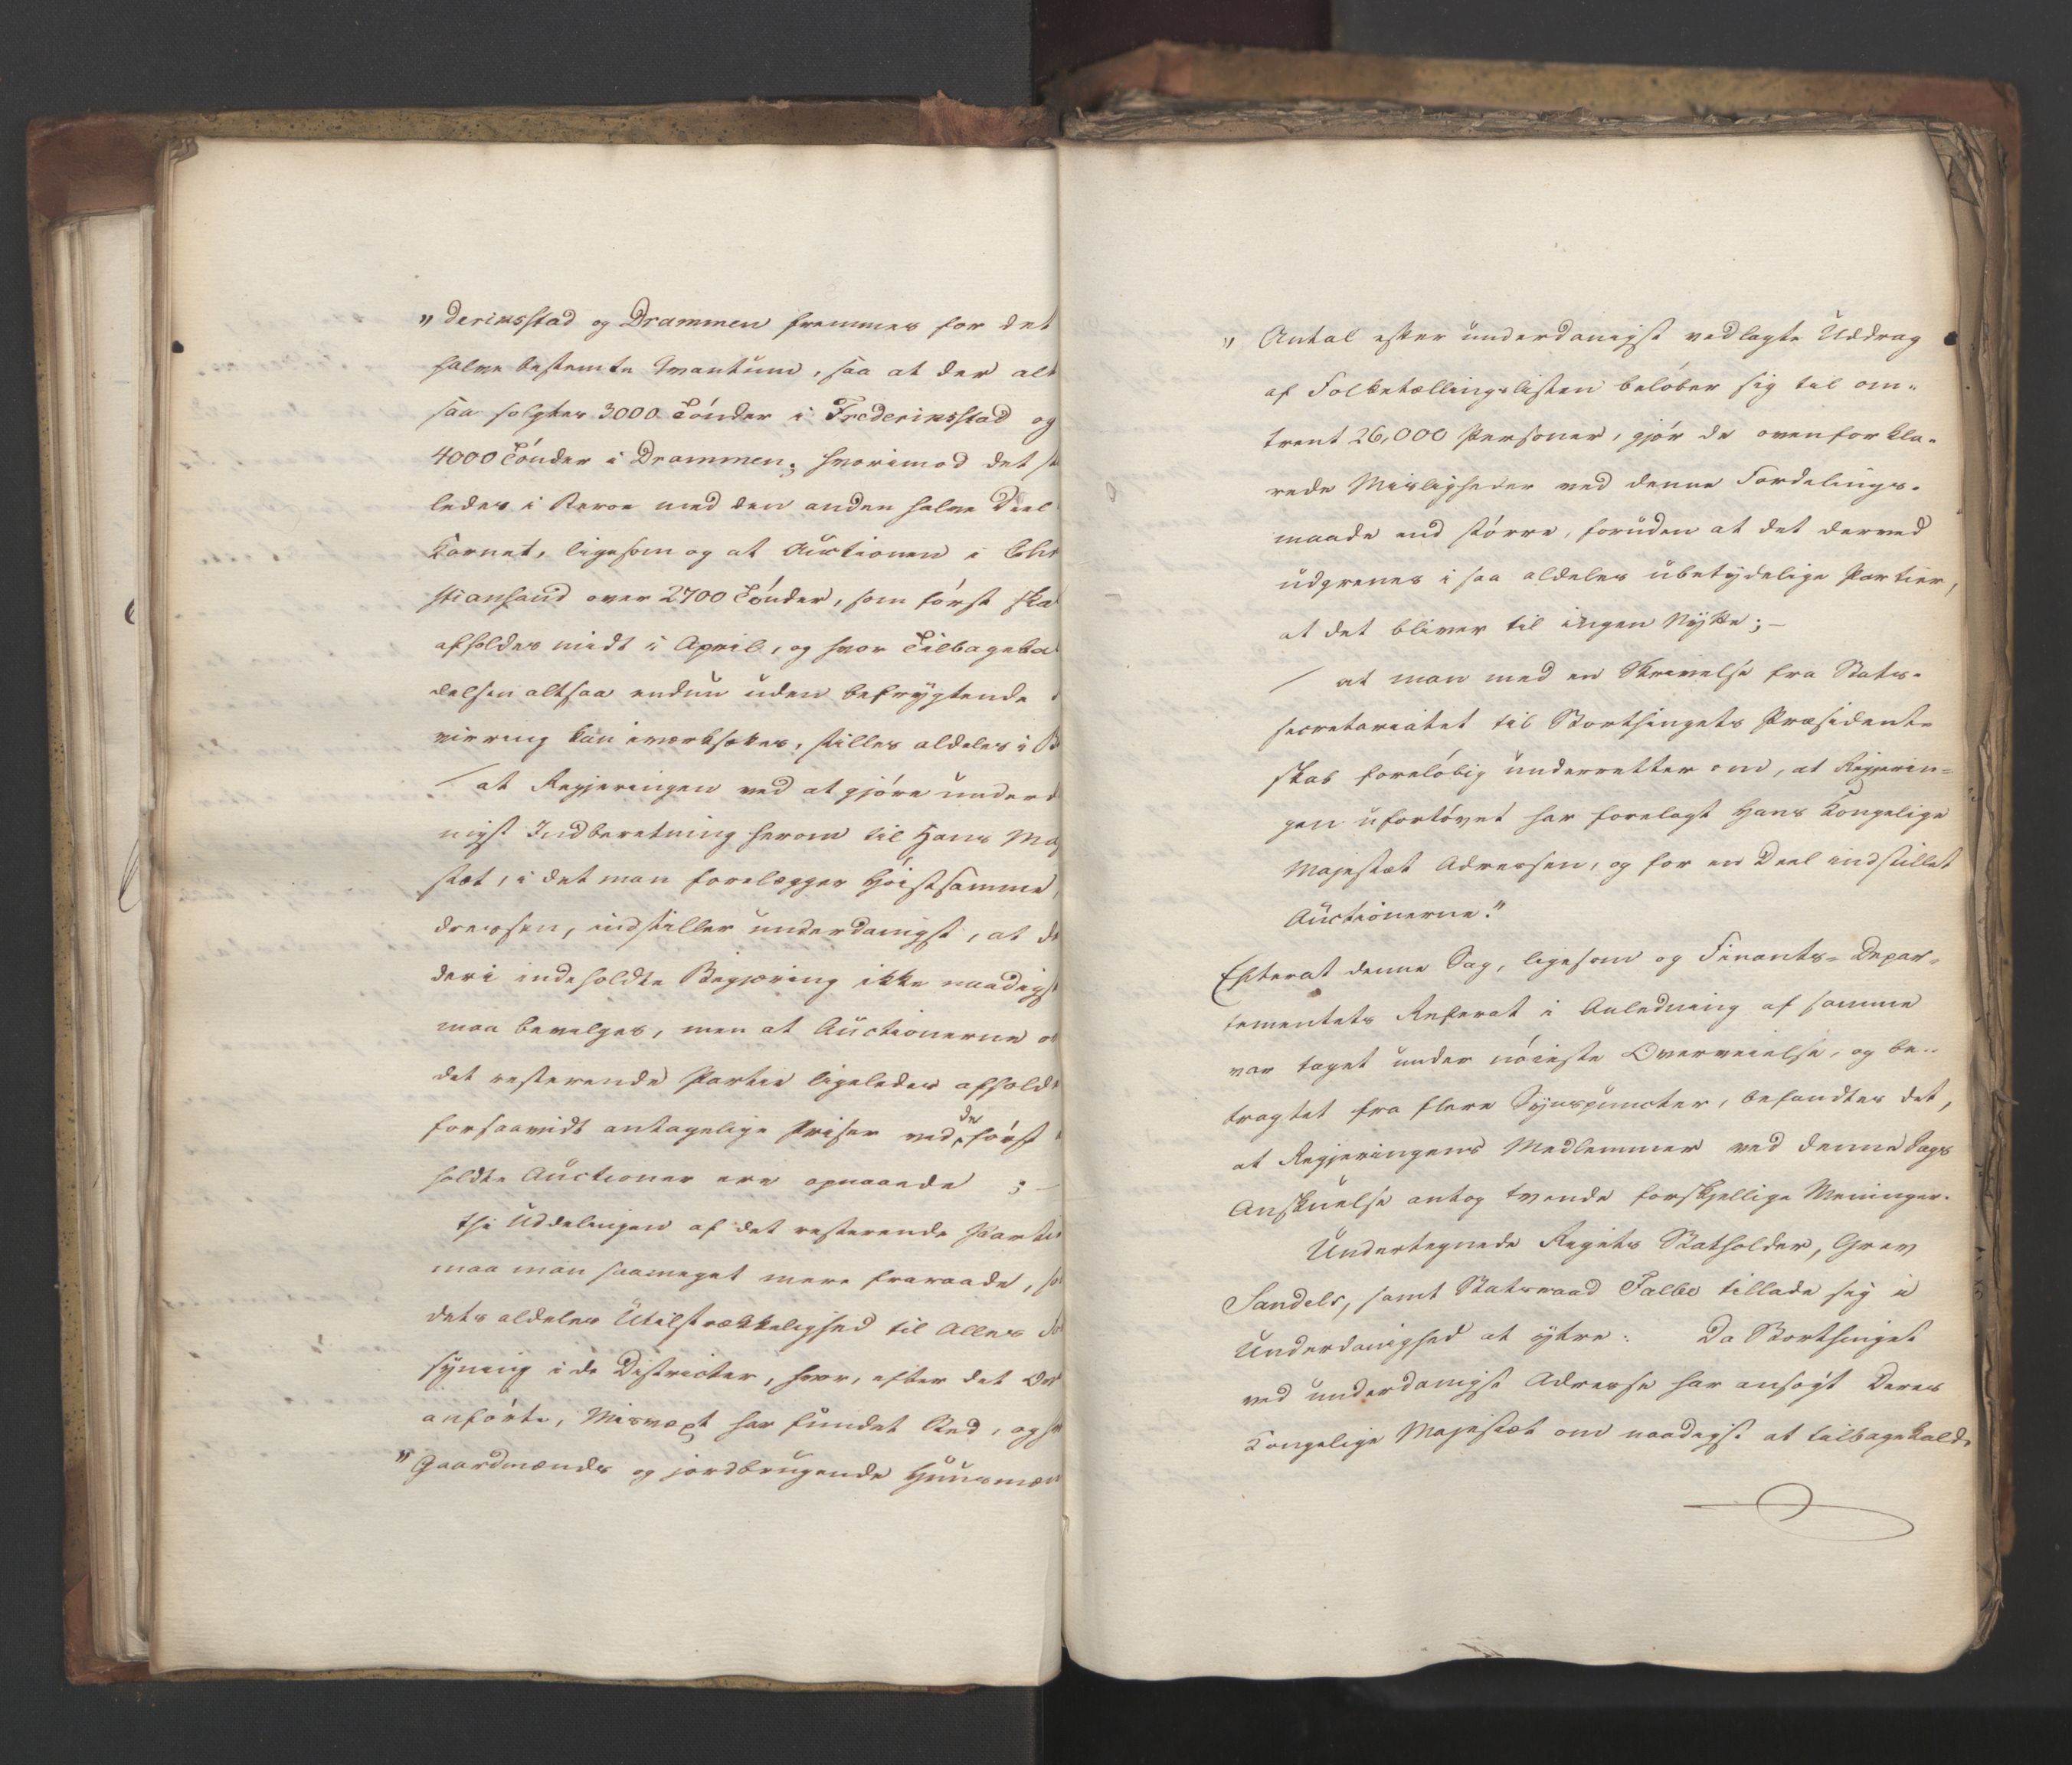 " deriksstad og Drammen fremmes for det
halve bestemte Qvantum, saa at der alt
saa solgtes 3000 Tønder i Frederiksstad og
4000 Tønder i Drammen; hvorimod det
ledes i Beroe med den anden halve Deel
Kornet, ligesom og at Auctionen i Chr
stiansand over 2700 Tønder, som først ska
afholdes midt i April, og hvor Tilbageka
delsen altsaa endnu uden befrygtende
virring kan iværksættes, stilles aldeles i B
/ at Regjeringen ved at gjøre underd
nigst Indberetning herom til Hans Maj
stæt, i det man forelægger Høistsamme
dressen, indstiller underdanigst, at de
deri indeholdte Begjæring ikke naadigst
maa bevilges, men at Auctionerne o
det resterende Partie ligeledes afhold
forsaavidt antagelige Priser ved de først
holdte Auctioner ere opnaaede ; —
thi Uddelingen af det resterende Parti
maa man saameget mere fraraade, so
dets aldeles Utilstrækkelighed til Alles For
syning i de Districter, hvor, efter det Ov
anførte, Misvæxt har fundet Sted, og h
" Gaardmænds og jordbrugende Huusmæn
" Antal efter underdanigst vedlagte Uddrag
af Folketællingslisten beløber sig til om-
trent 26,000 Personer, gjør de ovenforkla-
rede Misligheder ved denne Fordelings-
maade end større, foruden at det derved
udgrenes i saa aldeles ubetydelige Partier,
at det bliver til ingen Nytte; —
/ at man med en Skrivelse fra Stats-
secretariatet til Storthingets Præsident-
skab foreløbig underretter om, at Regjerin-
gen ufortøvet har forelagt Hans Kongelige
Majestæt Adressen, og for en Deel indstillet
Auctionerne."
Efterat denne Sag, ligesom og Finants-Depar-
tementets Referat i Anledning af samme
var taget under nøieste Overveielse, og be-
tragtet fra flere Synspuncter, befandtes det,
at Regjeringens Medlemmer ved denne Sags
Anskuelse antog tvende forskjellige Meninger.
Undertegnede Rigets Statholder, Grev
Sandels, samt Statsraad Falbe tillade sig i
Underdanighed at yttre: Da Storthinget
ved underdanigst Adresse har ansøgt Deres
Kongelige Majestæt om naadigst at tilbagekalde